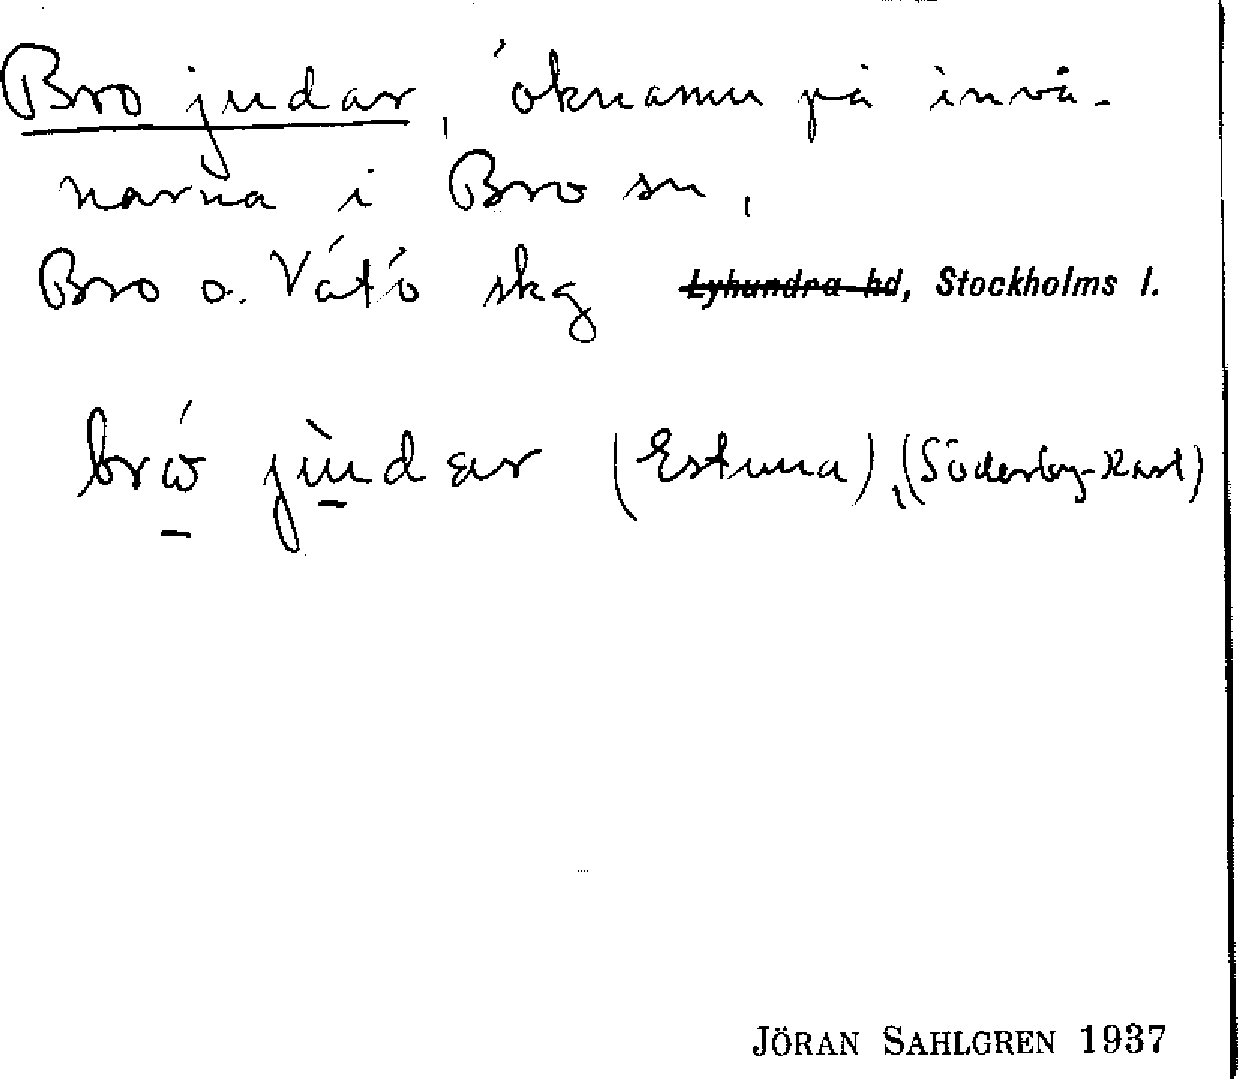 Bro judar, öknamn på invå-
narna i Bro sn,
Bro o. Vätö skg Lyhundra hd, Stockholms l.
brώ jùdar (Estuna), (Söderby-Karl)
JÖRAN SAHLGREN 1937